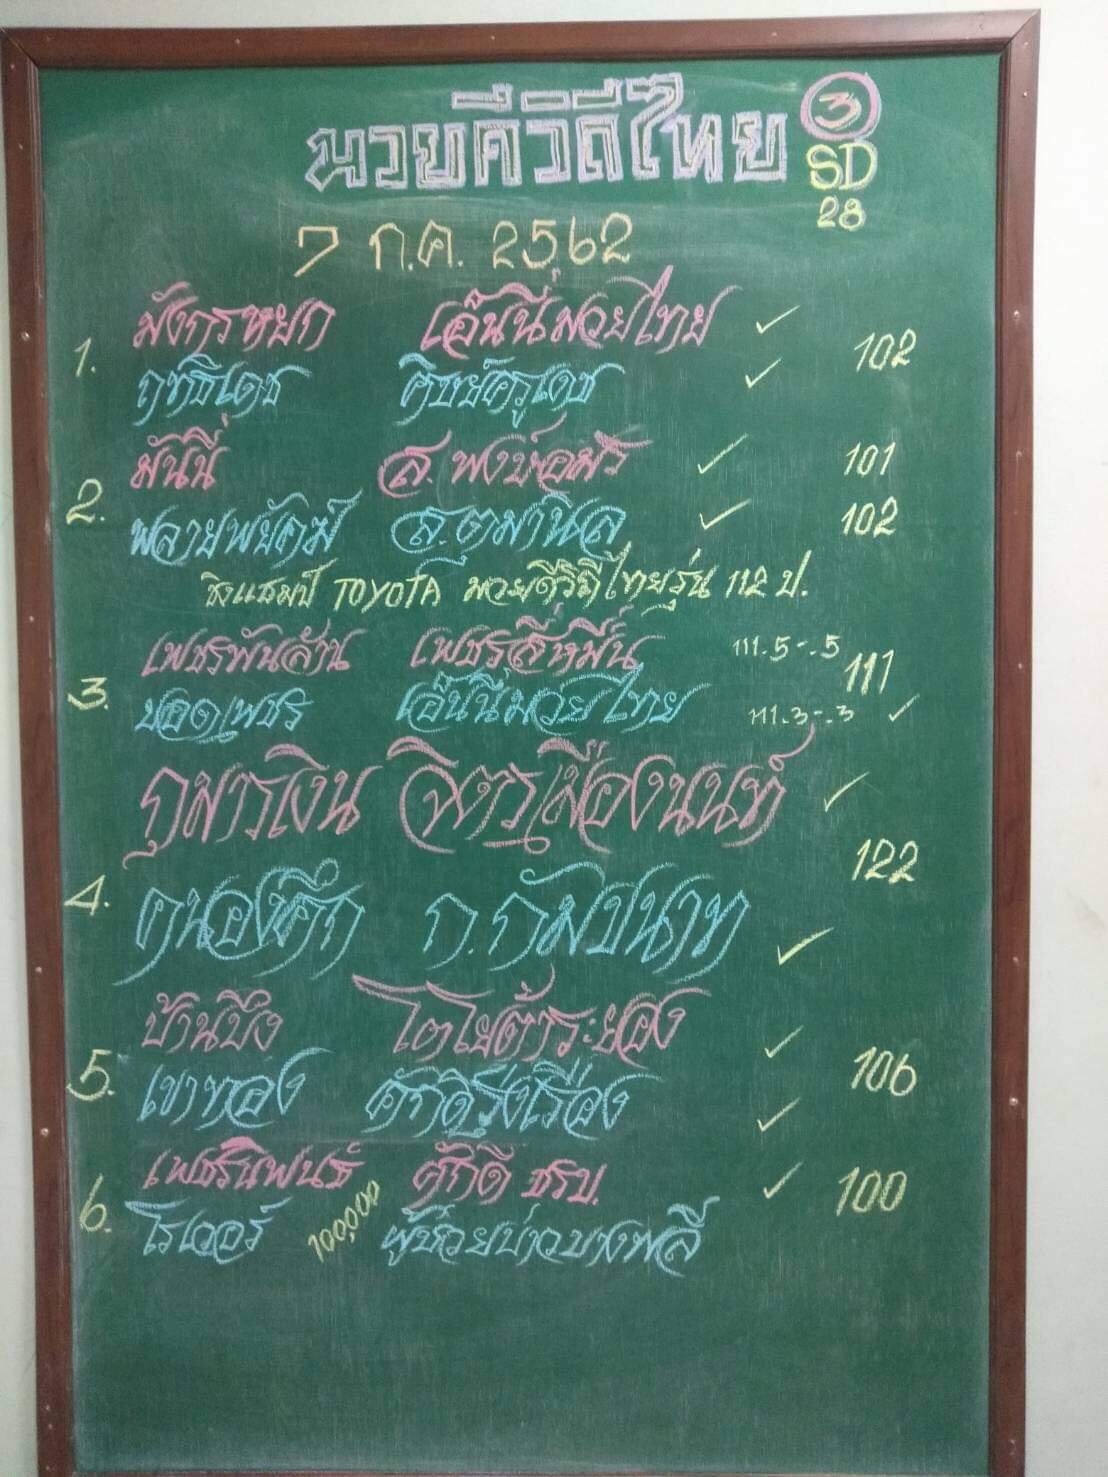 มวยดีวิถีไทย 3
SD
28
7 ก.ค. 2562
1. มังกรหยก เอ็นนี่มวยไทย ✓ 102
ฤทธิเดช ศิษย์ครูเดช ✓
2. มันนี่ ส.พงษ์อมร ✓ 101
พลายพยัคฆ์ ส.ตุมานิล ✓ 102
ชิงแชมป์ TOYOTA มวยดีวิถีไทยรุ่น 112 ป.
3. เพชรพันล้าน เพชรสี่หมื่น 111.5-.5 111
ยอดเพชร เอ็นนี่มวยไทย 111.3-.3 ✓
4. กุมารเงิน จิตรเมืองนนท์ ✓ 122
คนองศึก ก.กัมปนาท ✓
5. บ้านบึง โตโยต้าระยอง ✓ 106
เขาทอง ศักดิ์รุ่งเรือง ✓
6. เพชรนิพนธ์ ศักดิ์ ชรบ. ✓ 100
โรเวอร์ 100,000 ผู้ช่วยบ่าวบางพลี